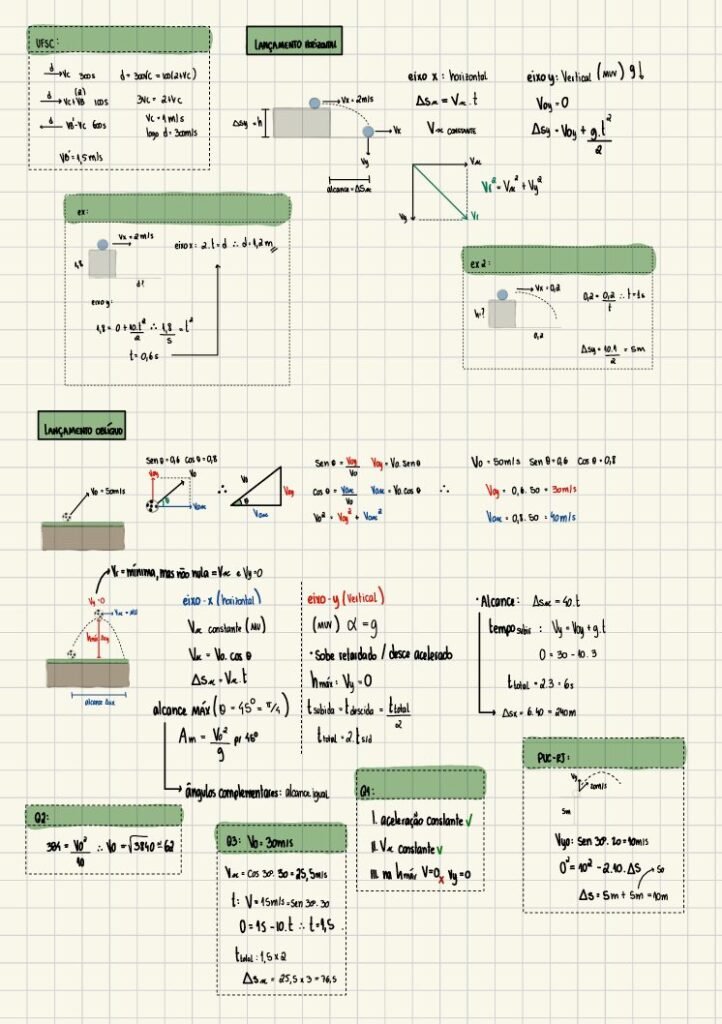 UFSC:
d Vc 300s d = 300Vc = 100(2+Vc)
d Vc + VB (2) 100s 3Vc = 2+Vc
d VB' - Vc 600s Vc = 1m/s
logo d = 300m/s
VB' = 1,5 m/s
LANÇAMENTO HORIZONTAL
Vx = 2m/s
Δsy = h
Vx
Vy
alcance = Δsx
eixo x: horizontal
Δsx = Vx . t
Vx CONSTANTE
eixo y: Vertical (MUV) g↓
Voy = 0
Δsy = Voy + g.t²/2
Vx
Vy
Vr
Vr² = Vx² + Vy²
ex:
Vx = 2m/s
1,8
d?
eixo x: 2.t = d ∴ d = 1,2m
eixo y:
1,8 = 0 + 10.t²/2 ∴ 1,8/5 = t²
t = 0,6s
ex 2:
Vx = 0,2
h?
0,2
0,2 = 0,2/t ∴ t = 1s
Δsy = 10.1/2 = 5m
LANÇAMENTO OBLÍQUO
Vo = 50m/s
Sen θ = 0,6 Cos θ = 0,8
Voy
Vo
θ
Vox
∴
Vo
θ
Voy
Vox
Sen θ = Voy/Vo Voy = Vo. sen θ
cos θ = Vox/Vo Vox = Vo. cos θ ∴
Vo² = Voy² + Vox²
Vo = 50m/s Sen θ = 0,6 Cos θ = 0,8
Voy = 0,6. 50 = 30m/s
Vox = 0,8. 50 = 40m/s
Vr = mínima, mas não nula = Vx e Vy = 0
Vy = 0
Vx = MU
hmáx
alcance Δsx
eixo - x (horizontal)
Vx constante (MU)
Vx = Vo. cos θ
Δsx = Vx . t
alcance MÁX (θ = 45° = π/4)
Am = Vo²/g p/ 45°
ângulos complementares: alcance igual
eixo - y (Vertical)
(MUV) α = g
• Sobe retardado / desce acelerado
hmáx: Vy = 0
tsubida = tdescida = ttotal/2
ttotal = 2. ts/d
• Alcance: Δsx = 40. t
tempo subir : Vy = Voy + g.t
0 = 30 - 10.3
ttotal = 2.3 = 6s
Δsx = 6.40 = 240m
Q2:
384 = Vo²/10 ∴ Vo = √3840 ≅ 62
Q3: Vo = 30m/s
Vx = Cos 30°. 30 = 25,5m/s
t: V = 15m/s = Sen 30°. 30
0 = 15 - 10. t ∴ t = 1,5
ttotal: 1,5 x 2
Δsx = 25,5 x 3 = 76,5
Q1:
I. aceleração constante ✓
II. Vx constante ✓
III. na hmáx V = 0 x Vy = 0
PUC-RJ:
Vy
20m/s
5m
Vyo: Sen 30°. 20 = 10m/s
0² = 10² - 2.10. ΔS
So
ΔS = 5m + 5m = 10m